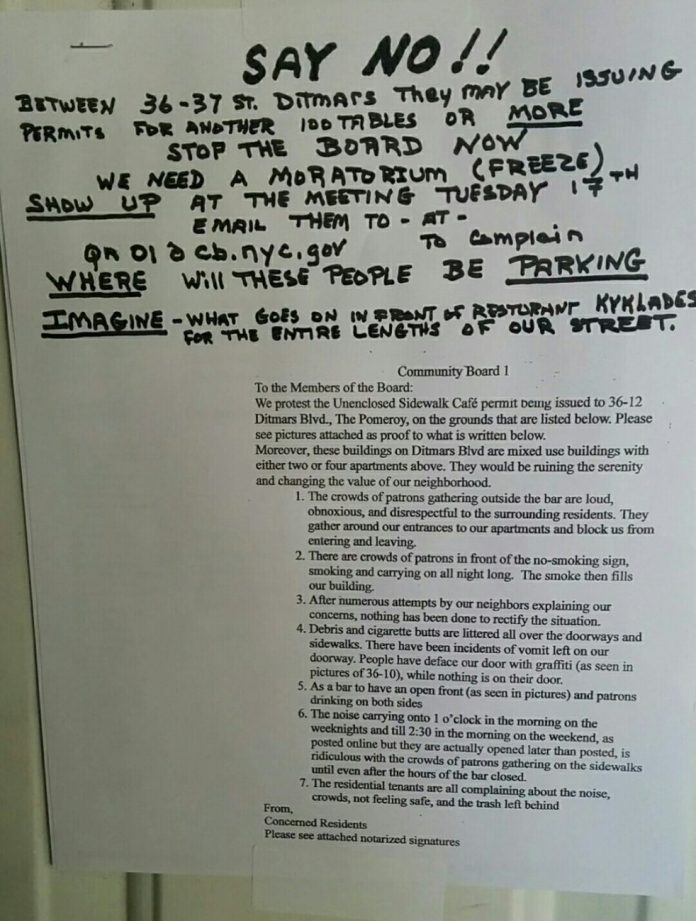 SAY NO!!
BETWEEN 36-37 ST. DITMARS THEY MAY BE ISSUING
PERMITS FOR ANOTHER 100 TABLES OR MORE
STOP THE BOARD NOW
WE NEED A MORATORIUM (FREEZE)
SHOW UP AT THE MEETING TUESDAY 17TH
EMAIL THEM TO - AT -
Qn01@cb.nyc.gov To Complain
WHERE Will THESE PEOPLE BE PARKING
IMAGINE - WHAT GOES ON IN FRONT OF RESTURANT KYKLADES
FOR THE ENTIRE LENGTHS OF OUR STREET.
Community Board 1
To the Members of the Board:
We protest the Unenclosed Sidewalk Café permit being issued to 36-12
Ditmars Blvd., The Pomeroy, on the grounds that are listed below. Please
see pictures attached as proof to what is written below.
Moreover, these buildings on Ditmars Blvd are mixed use buildings with
either two or four apartments above. They would be ruining the serenity
and changing the value of our neighborhood.
1. The crowds of patrons gathering outside the bar are loud,
obnoxious, and disrespectful to the surrounding residents. They
gather around our entrances to our apartments and block us from
entering and leaving.
2. There are crowds of patrons in front of the no-smoking sign,
smoking and carrying on all night long. The smoke then fills
our building.
3. After numerous attempts by our neighbors explaining our
concerns, nothing has been done to rectify the situation.
4. Debris and cigarette butts are littered all over the doorways and
sidewalks. There have been incidents of vomit left on our
doorway. People have deface our door with graffiti (as seen in
pictures of 36-10), while nothing is on their door.
5. As a bar to have an open front (as seen in pictures) and patrons
drinking on both sides
6. The noise carrying onto 1 o'clock in the morning on the
weeknights and till 2:30 in the morning on the weekend, as
posted online but they are actually opened later than posted, is
ridiculous with the crowds of patrons gathering on the sidewalks
until even after the hours of the bar closed.
7. The residential tenants are all complaining about the noise,
crowds, not feeling safe, and the trash left behind
From,
Concerned Residents
Please see attached notarized signatures